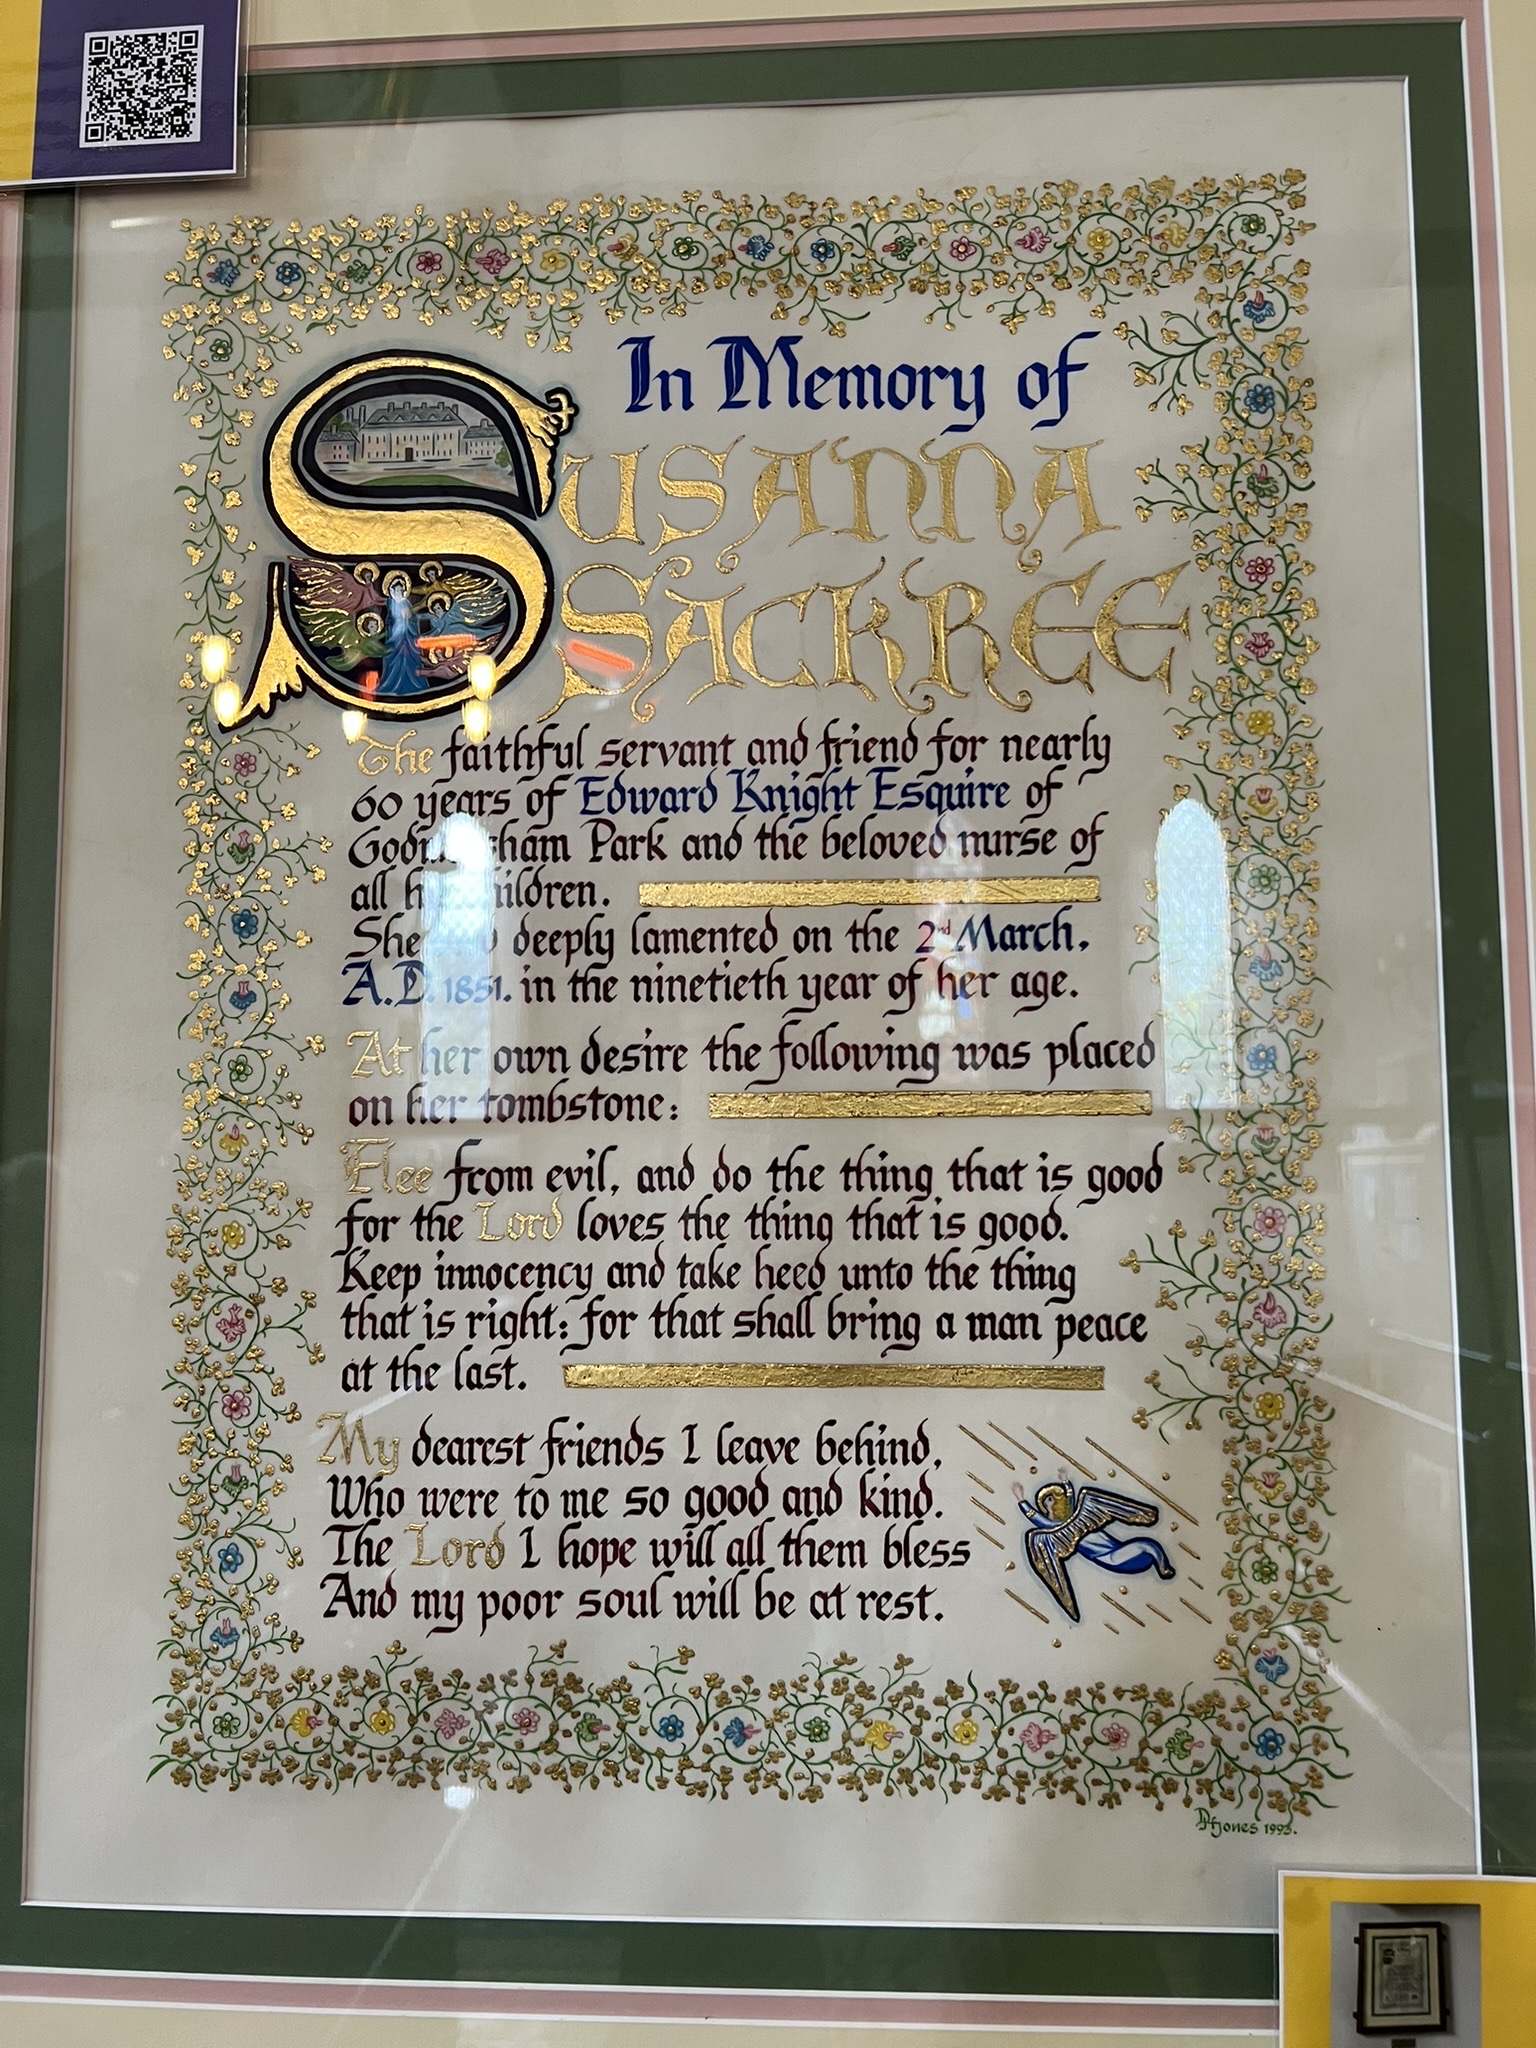 In Memory of
SUSANNA
SACKREE
The faithful servant and friend for nearly
60 years of Edward Knight Esquire of
Park and the beloved nurse of
all
She deeply lamented on the 2nd March,
A.D. 1851. in the ninetieth year of her age.
At her own desire the following was placed
on her tombstone:
Flee from evil, and do the thing that is good
for the Lord loves the thing that is good.
Keep innocency and take heed unto the thing
that is right: for that shall bring a man peace
at the last.
My dearest friends I leave behind,
Who were to me so good and kind.
The Lord I hope will all them bless
And my poor soul will be at rest.
Jones